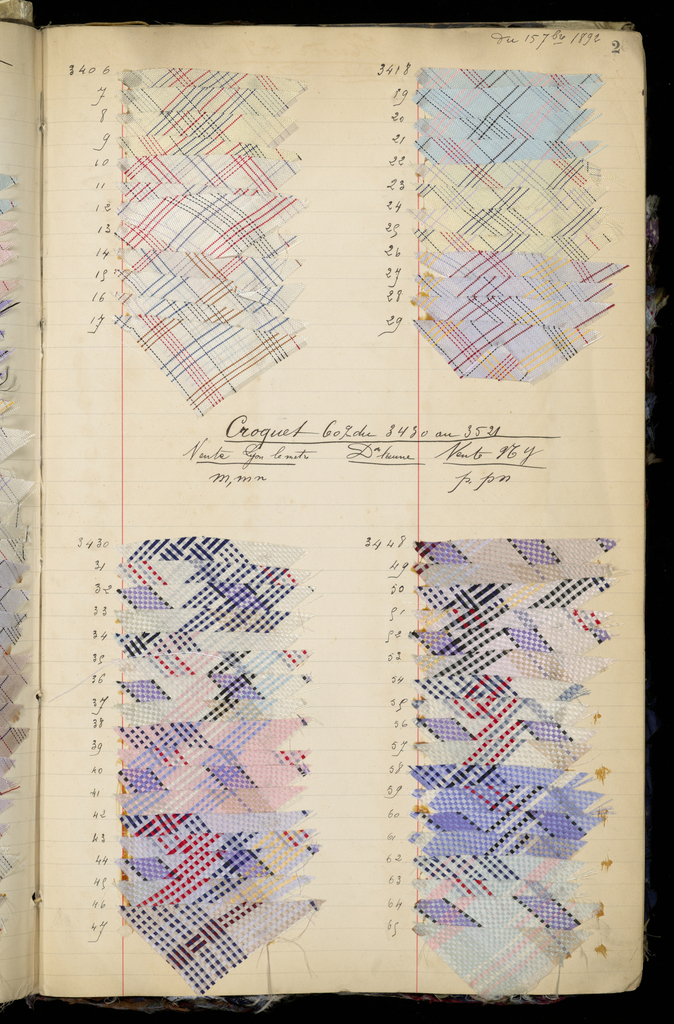 du 15 7bre 1892
2
3406
7
8
9
10
11
12
13
14
15
16
17
3418
19
20
21
22
23
24
25
26
27
28
29
Croquet 60 du 3430 au 3521
Vente Lyon le metre Vente
m, mn p pn
3430
31
32
33
34
35
36
37
38
39
40
41
42
43
44
45
46
47
3448
49
50
51
52
53
54
55
56
57
58
59
60
61
62
63
64
65